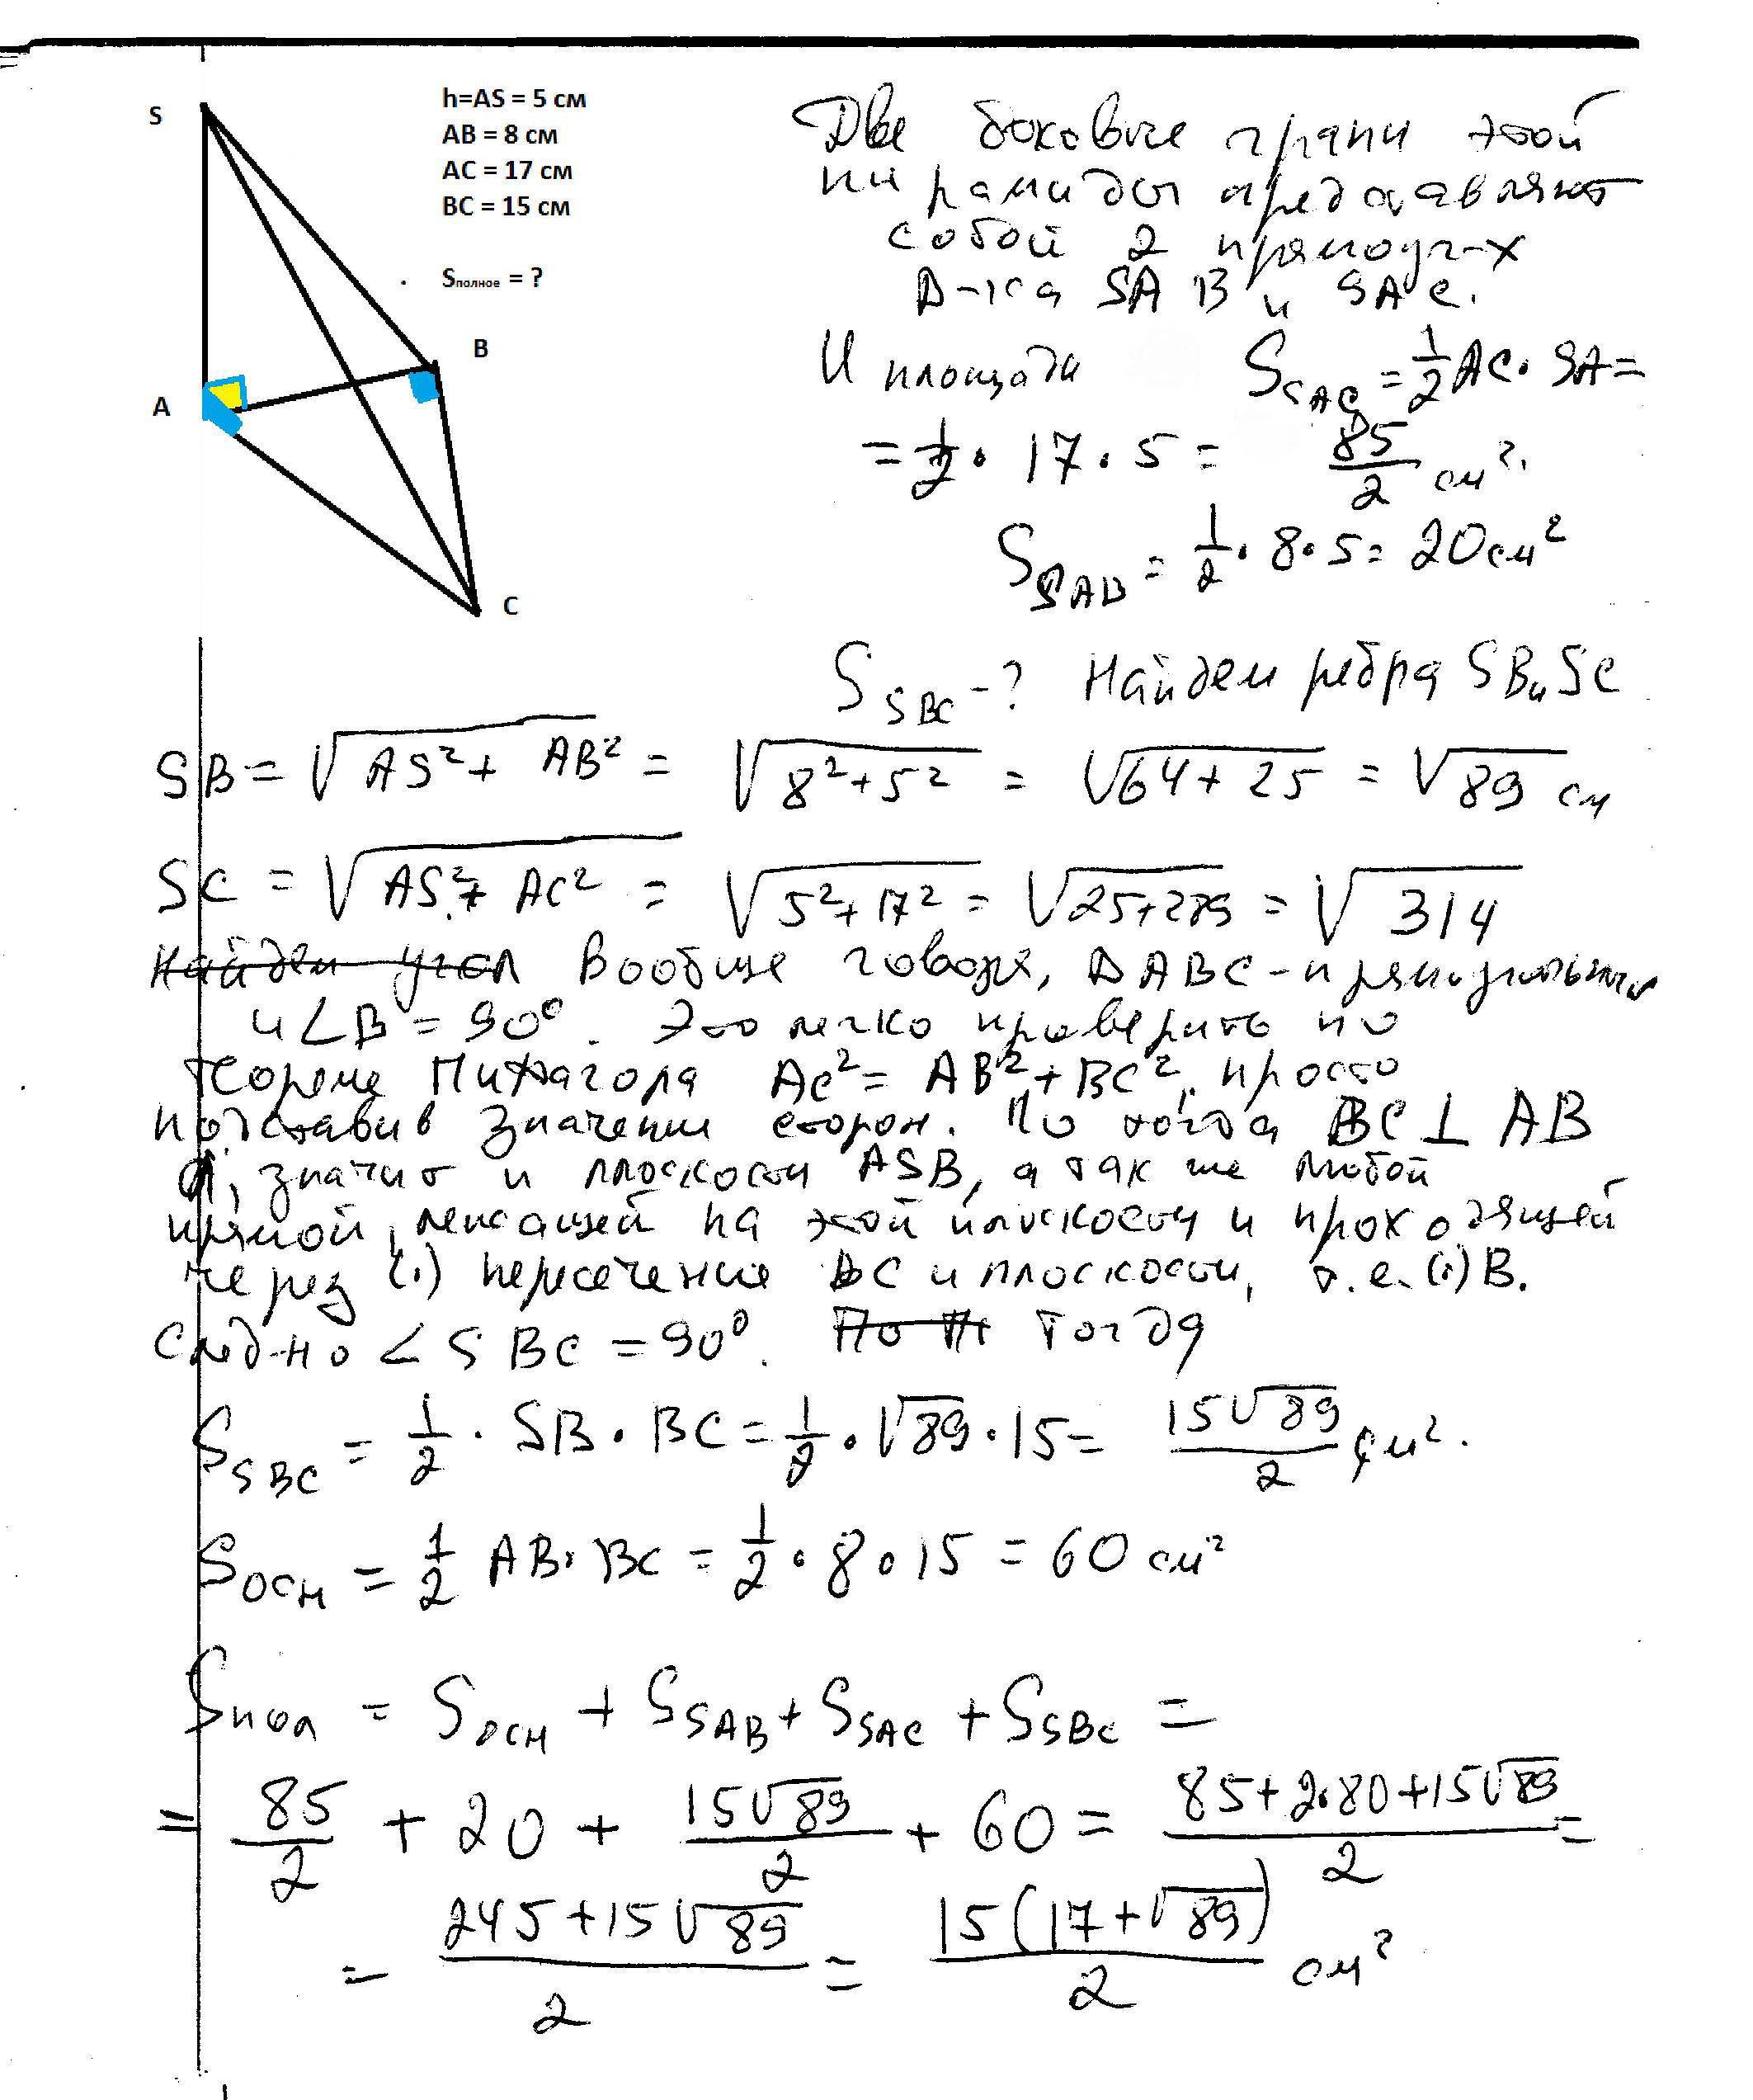 S
h=AS = 5 см
AB = 8 см
AC = 17 см
BC = 15 см
Sполное = ?
B
A
C
Две боковые грани этой
пирамиды представляют
собой 2 прямоуг-х
Δ-ка SAB и SAC.
И площади S_SAC = 1/2 AC · SA =
= 1/2 · 17 · 5 = 85/2 см².
S_SAB = 1/2 · 8 · 5 = 20 см²
S_SBC - ? Найдем ребра SB и SC
SB = √(AS² + AB²) = √(8² + 5²) = √(64 + 25) = √89 см
SC = √(AS² + AC²) = √(5² + 17²) = √(25 + 289) = √314
Найдем угол Вообще говоря, Δ ABC - прямоугольный
и ∠B = 90°. Это легко проверить по
теореме Пифагора AC² = AB² + BC², просто
подставив значения сторон. Но тогда BC ⊥ AB
А, значит и плоскости ASB, а так же любой
прямой, лежащей на этой плоскости и проходящей
через (·) пересечения BC и плоскости, т.е. (·) B.
След-но ∠SBC = 90°. Тогда
S_SBC = 1/2 · SB · BC = 1/2 · √89 · 15 = 15√89/2 см².
S_осн = 1/2 AB · BC = 1/2 · 8 · 15 = 60 см²
S_пол = S_осн + S_SAB + S_SAC + S_SBC =
= 85/2 + 20 + 15√89/2 + 60 = (85 + 2·80 + 15√89)/2 =
= (245 + 15√89)/2 = 15(17 + √89)/2 см²